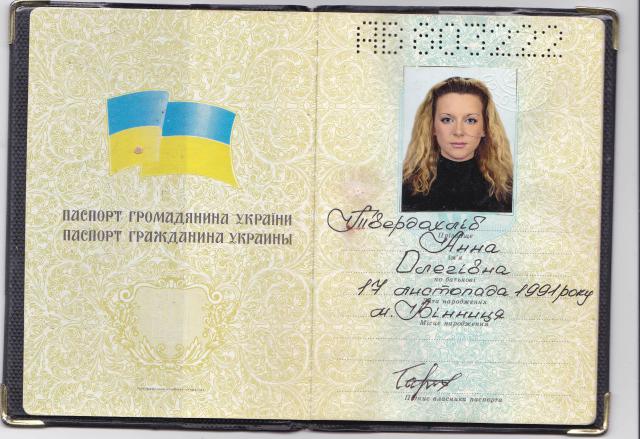 ПАСПОРТ ГРОМАДЯНИНА УКРАЇНИ
ПАСПОРТ ГРАЖДАНИНА УКРАИНЫ
АВ 803222
Твердохліб
Прізвище
Анна
Ім'я
Олегівна
по батькові
17 листопада 1991 року
Дата народження
м. Вінниця
Місце народження
Підпис власника паспорта